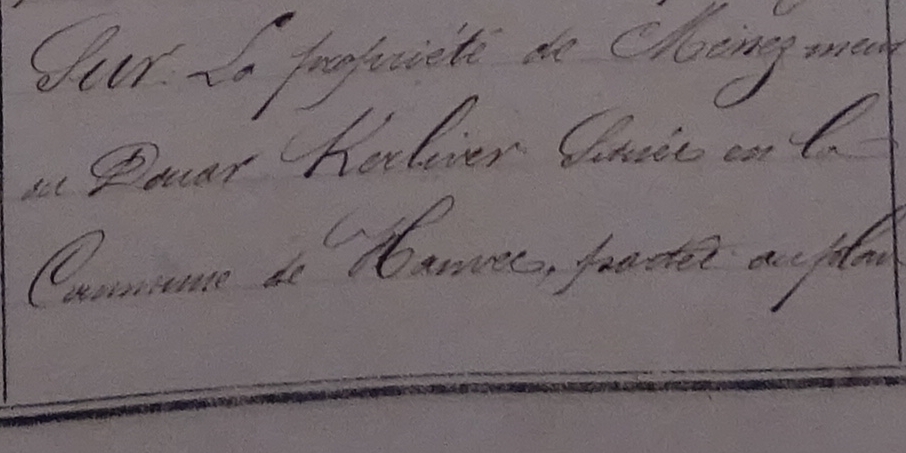 Sur La propriété de Ménez meur
ou Douar Kerliver Située en la
Commune de Hanvec, porter au plan